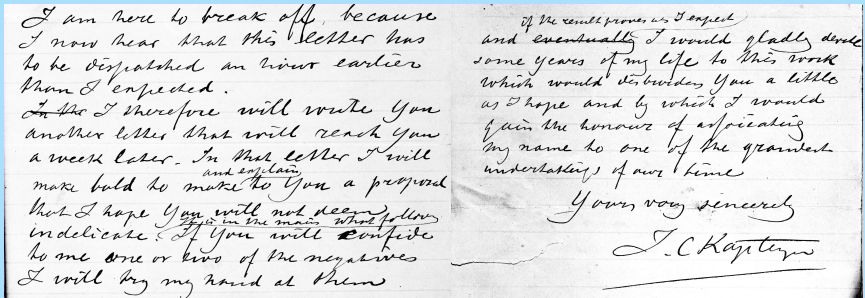 I am here to break off, because
I now hear that this letter has
to be dispatched an hour earlier
than I expected.
In the I therefore will write You
another letter that will reach You
a week later. In that letter I will
and explain
make bold to make to You a proposal
that I hope You will not deem
It is in the main what follows
indelicate. If You will confide
to me one or two of the negatives
I will try my hand at them
if the result proves as I expect
and eventually I would gladly devote
some years of my life to this work
which would disburden You a little
as I hope and by which I would
gain the honour of associating
my name to one of the grandest
undertakings of our time
Yours very sincerely
J. C Kapteyn